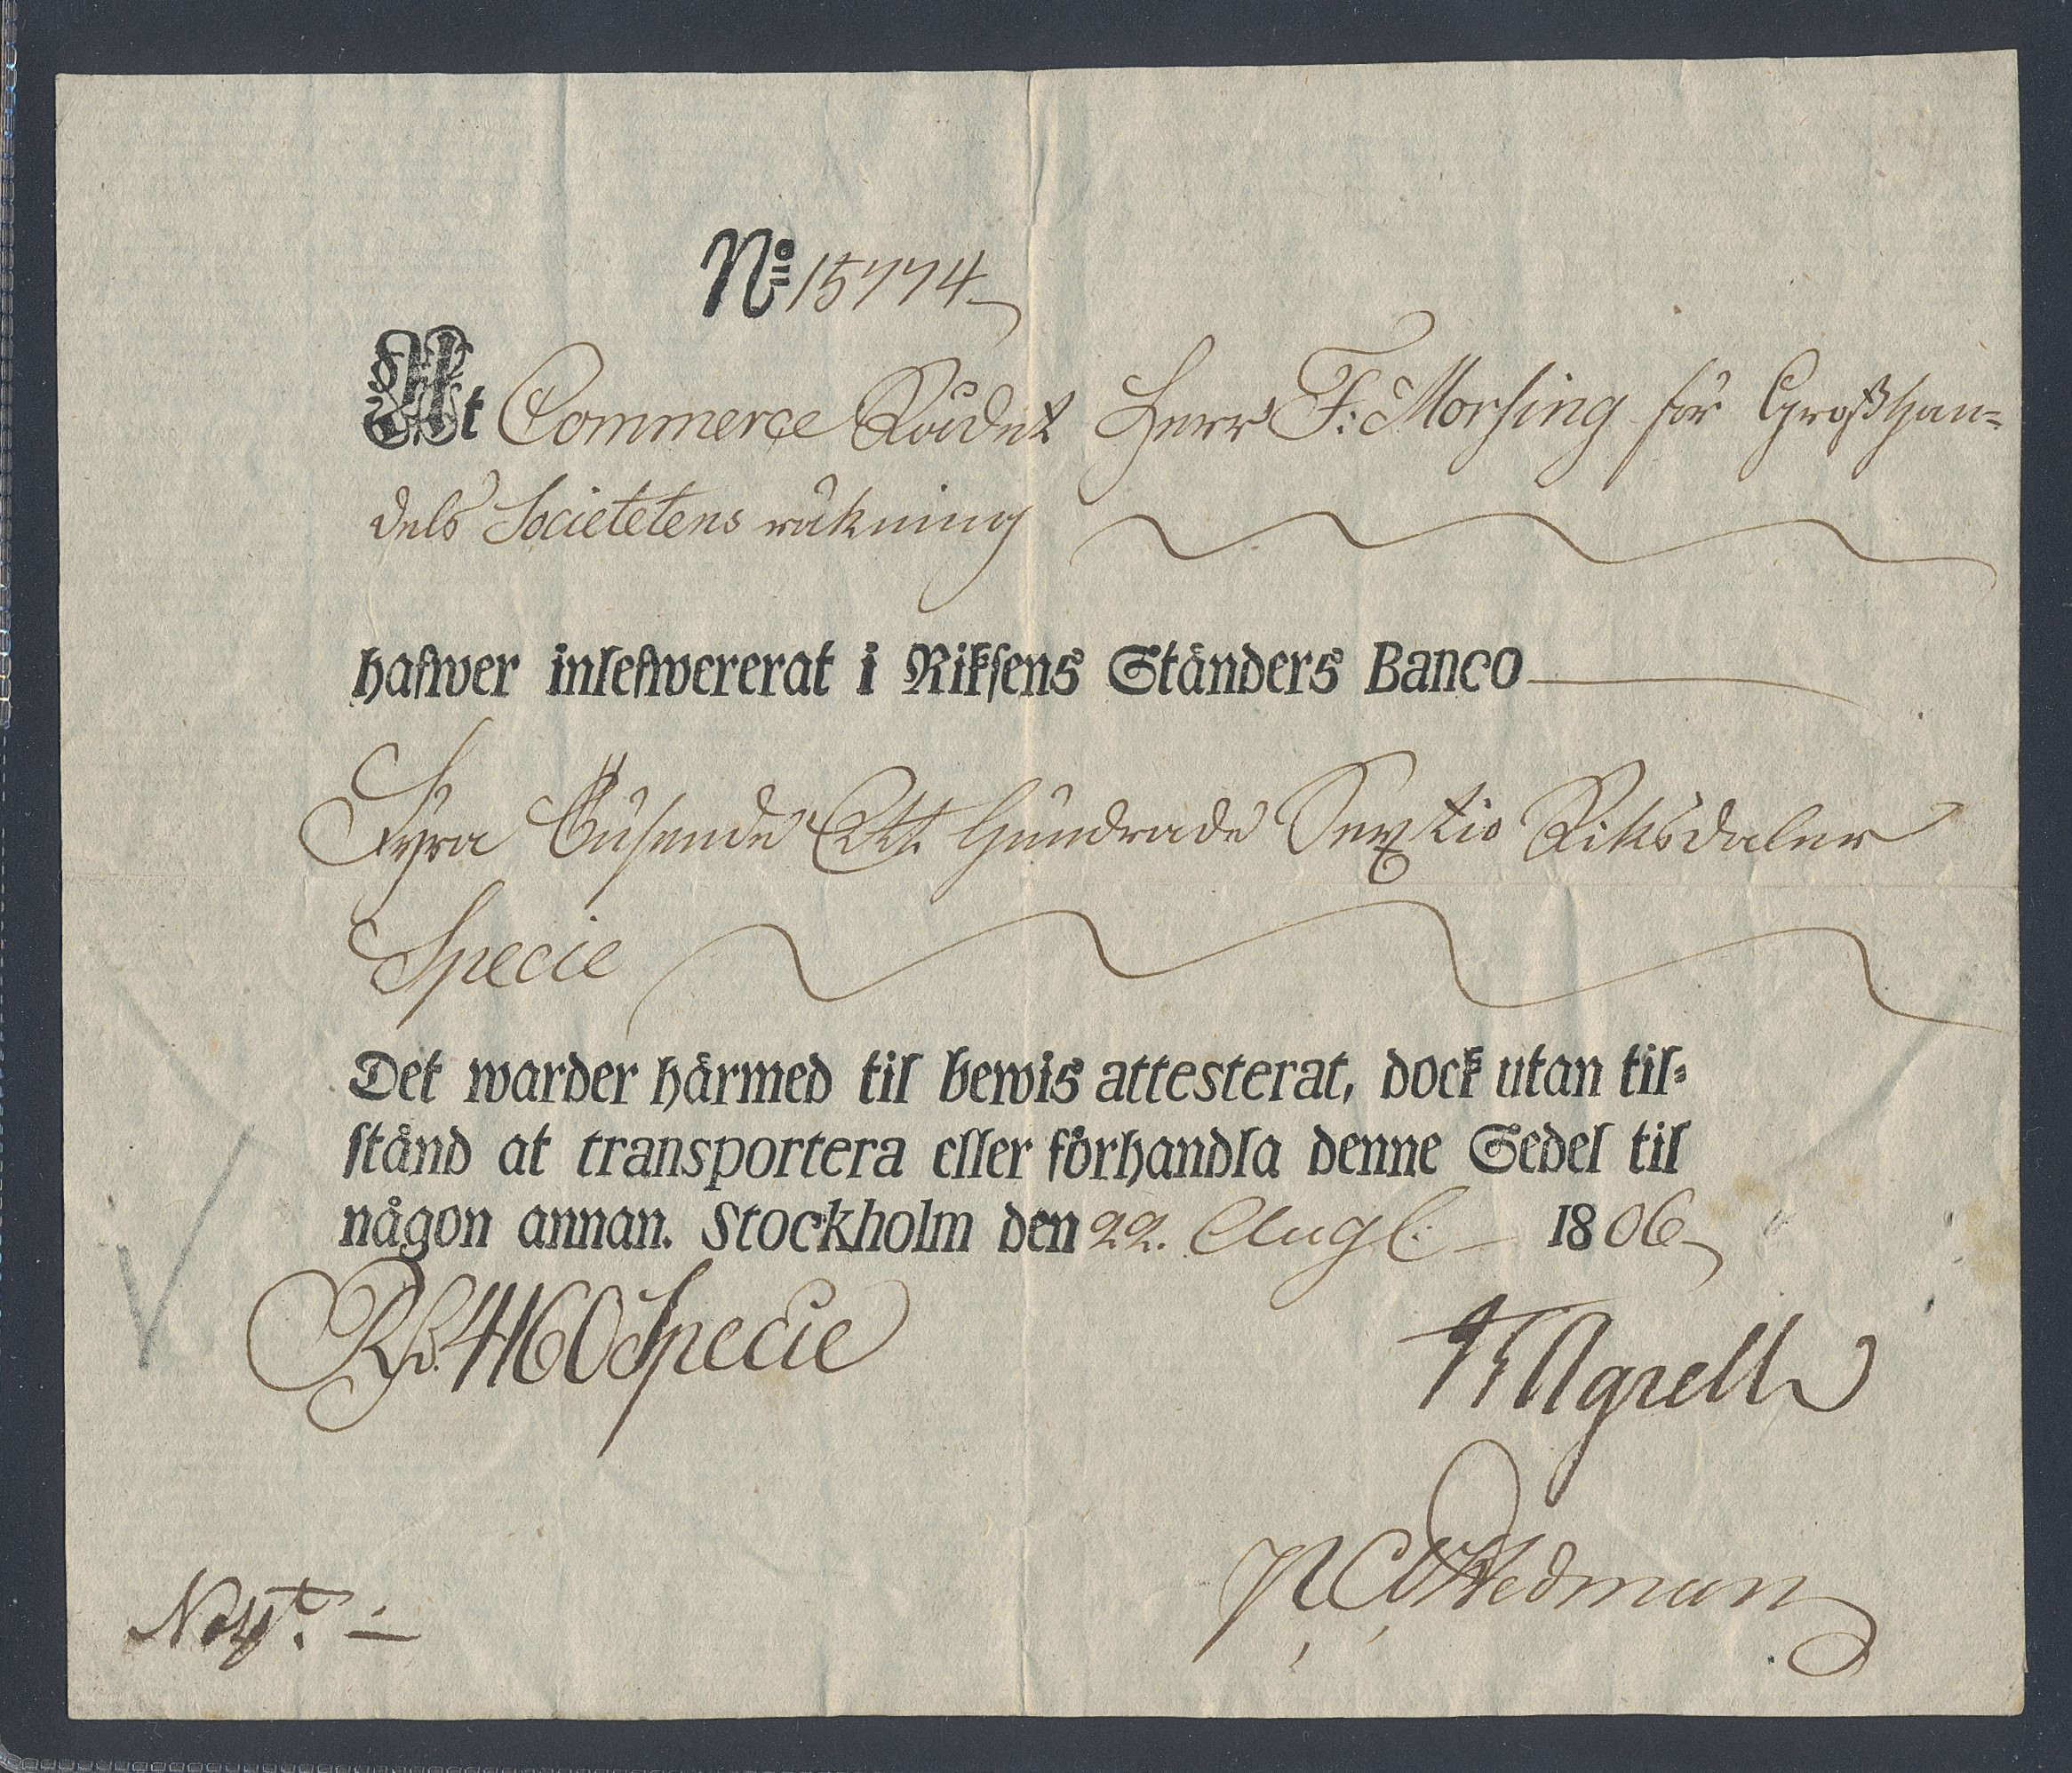 No 15774
At Commerce Rådet Herr F: Morsing för Großhan=
dels Societetens räkning
hafwer inlefwererat i Riksens Ständers Banco
Fyra Tusende Ett Hundrade Sextio Riksdaler
Specie
Det warder härmed til bewis attesterat, dock utan til=
stånd at transportera eller förhandla denne Sedel til
någon annan. Stockholm den 22. Aug 1806
Rd. 4160 Specie
Agrell
Wedman